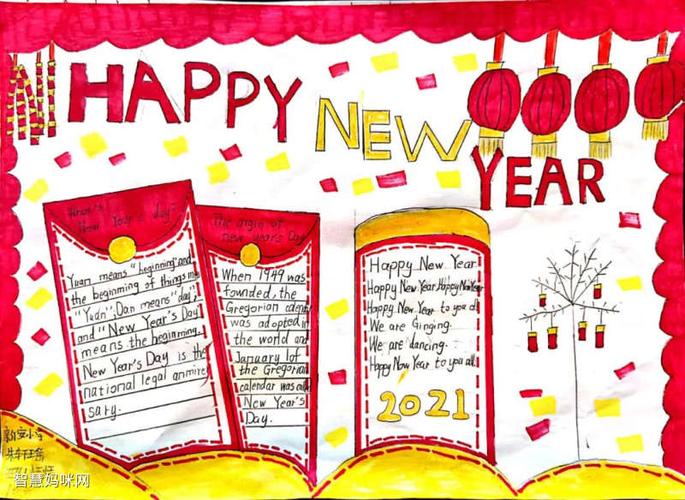 HAPPY
NEW
YEAR
New Year's day
The origin of
new year's Day
Yuan means "beginning" and
the beginning of things
"Yuan"; Dan means "day";
and "New Year's Day
means the beginning.
New Year's Day is the
national legal
sary.
When 1949 was
founded, the
Gregorian
was adopted in
the world and
January 1of
the Gregorian
calendar was
New Year's
Day.
Happy New Year
Happy New Year Happy New Year
Happy New Year to you all
We are Ginging.
We are dancing.
Happy New Year to you all.
2021
智慧妈咪网